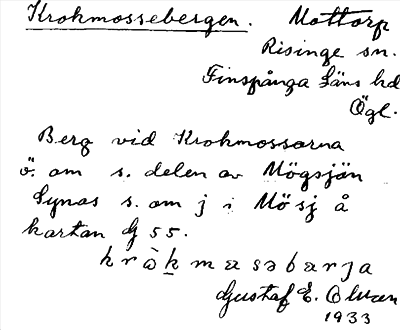 Krokmossebergen. Mottorp
Risinge sn.
Finspånga Läns hd
Ögl.
Berg vid Krokmossarna
ö. om s. delen av Mögsjön
Synas s. om j i Mösj å
kartan G 55.
Gustaf E.
1933